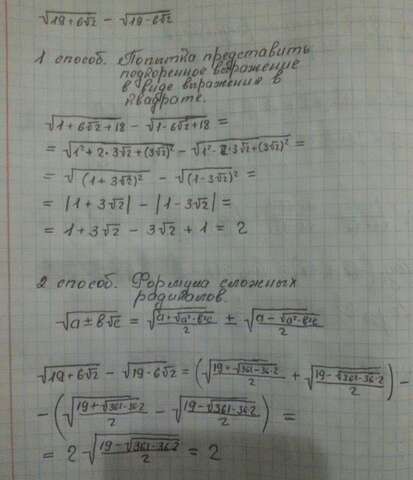 √19+6√2 − √19-6√2
1 способ. Попытка представить
подкоренное выражение
в виде выражения в
квадрате.
√1+6√2+18 − √1-6√2+18 =
= √1²+2·3√2+(3√2)² − √1²-2·3√2+(3√2)² =
= √(1+3√2)² − √(1-3√2)² =
= |1+3√2| − |1-3√2| =
= 1+3√2 − 3√2 + 1 = 2
2 способ. Формула сложных
радикалов.
√a±b√c = √a+√a²-b²c/2 ± √a-√a²-b²c/2
√19+6√2 − √19-6√2 = (√19+√361-36·2/2 + √19-√361-36·2/2) −
− (√19+√361-36·2/2 − √19-√361-36·2/2) =
= 2√19-√361-36·2/2 = 2